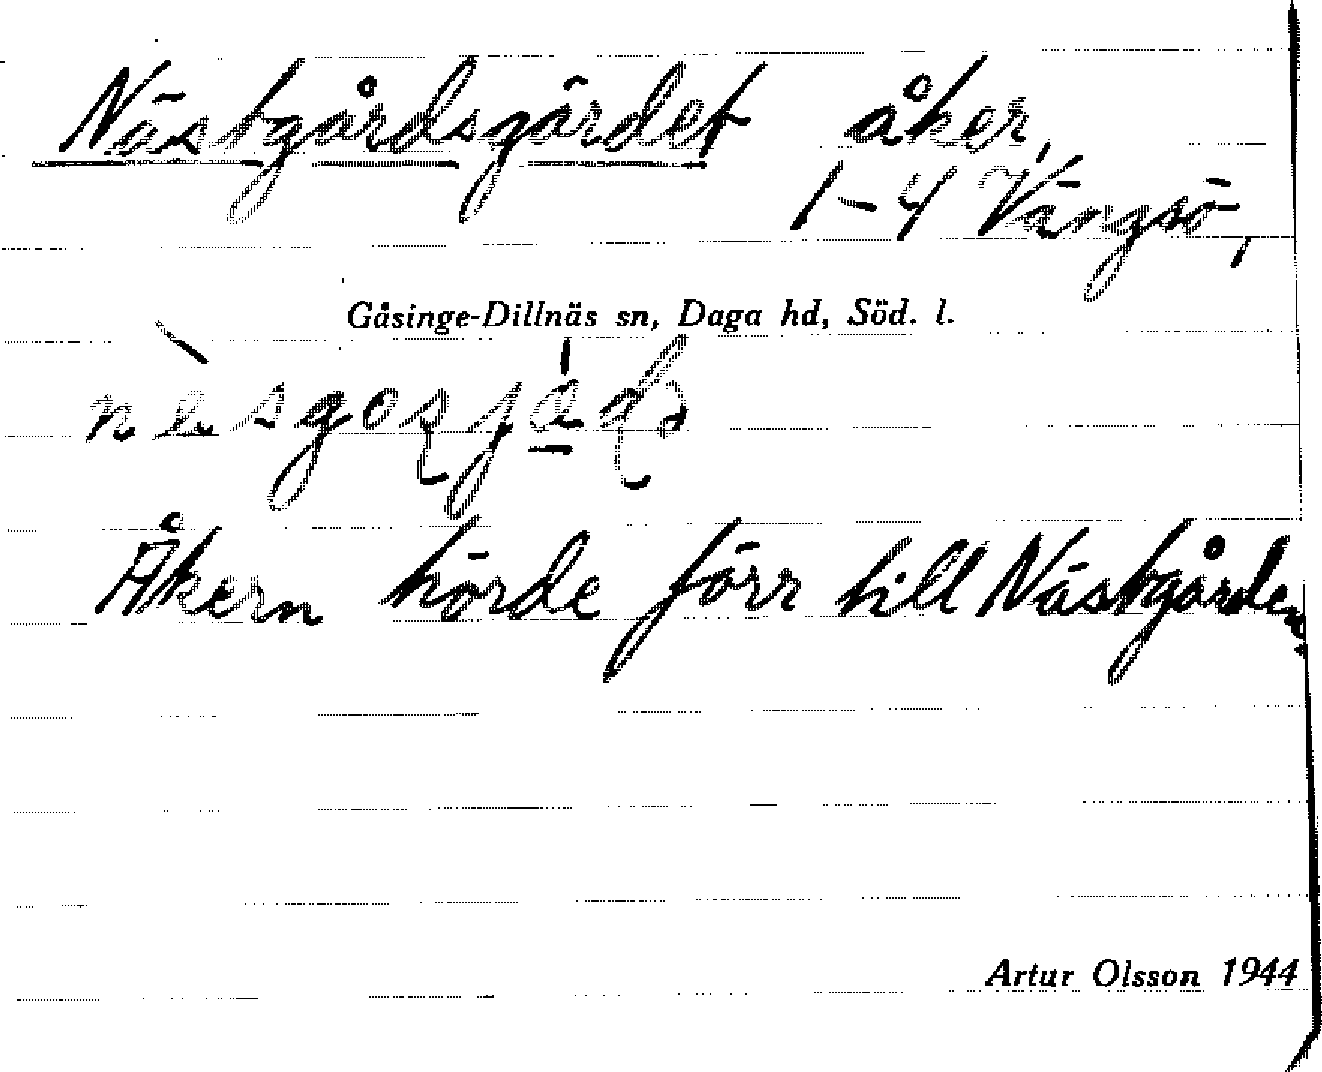 Nästgårdsgärdet åker,
1-4 Vängsö,
Gåsinge-Dillnäs sn, Daga hd, Söd. l.
Åkern hörde förr till Nästgården.
Artur Olsson 1944